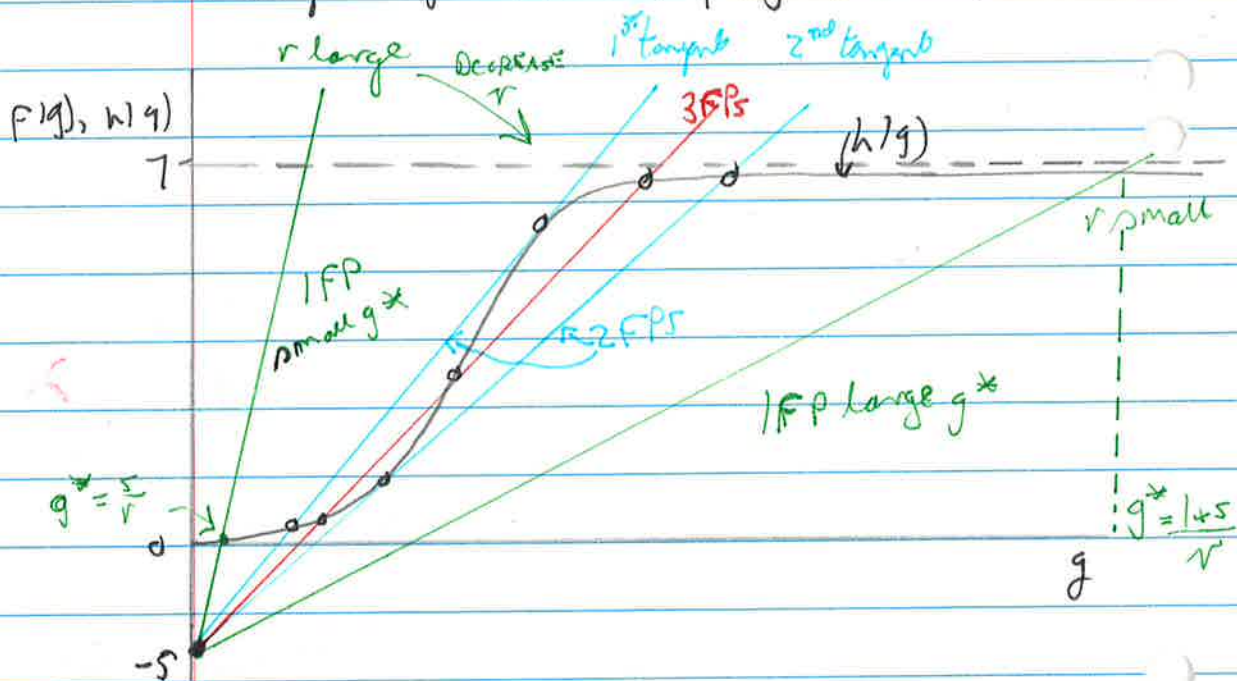 r large
DECREASE
r
1st tangent
2nd tangent
3FPs
F(g), h(g)
h(g)
1
r small
1FP
small g*
2FPs
1FP large g*
g* = s/r
g* = 1+s/r
0
g
-s